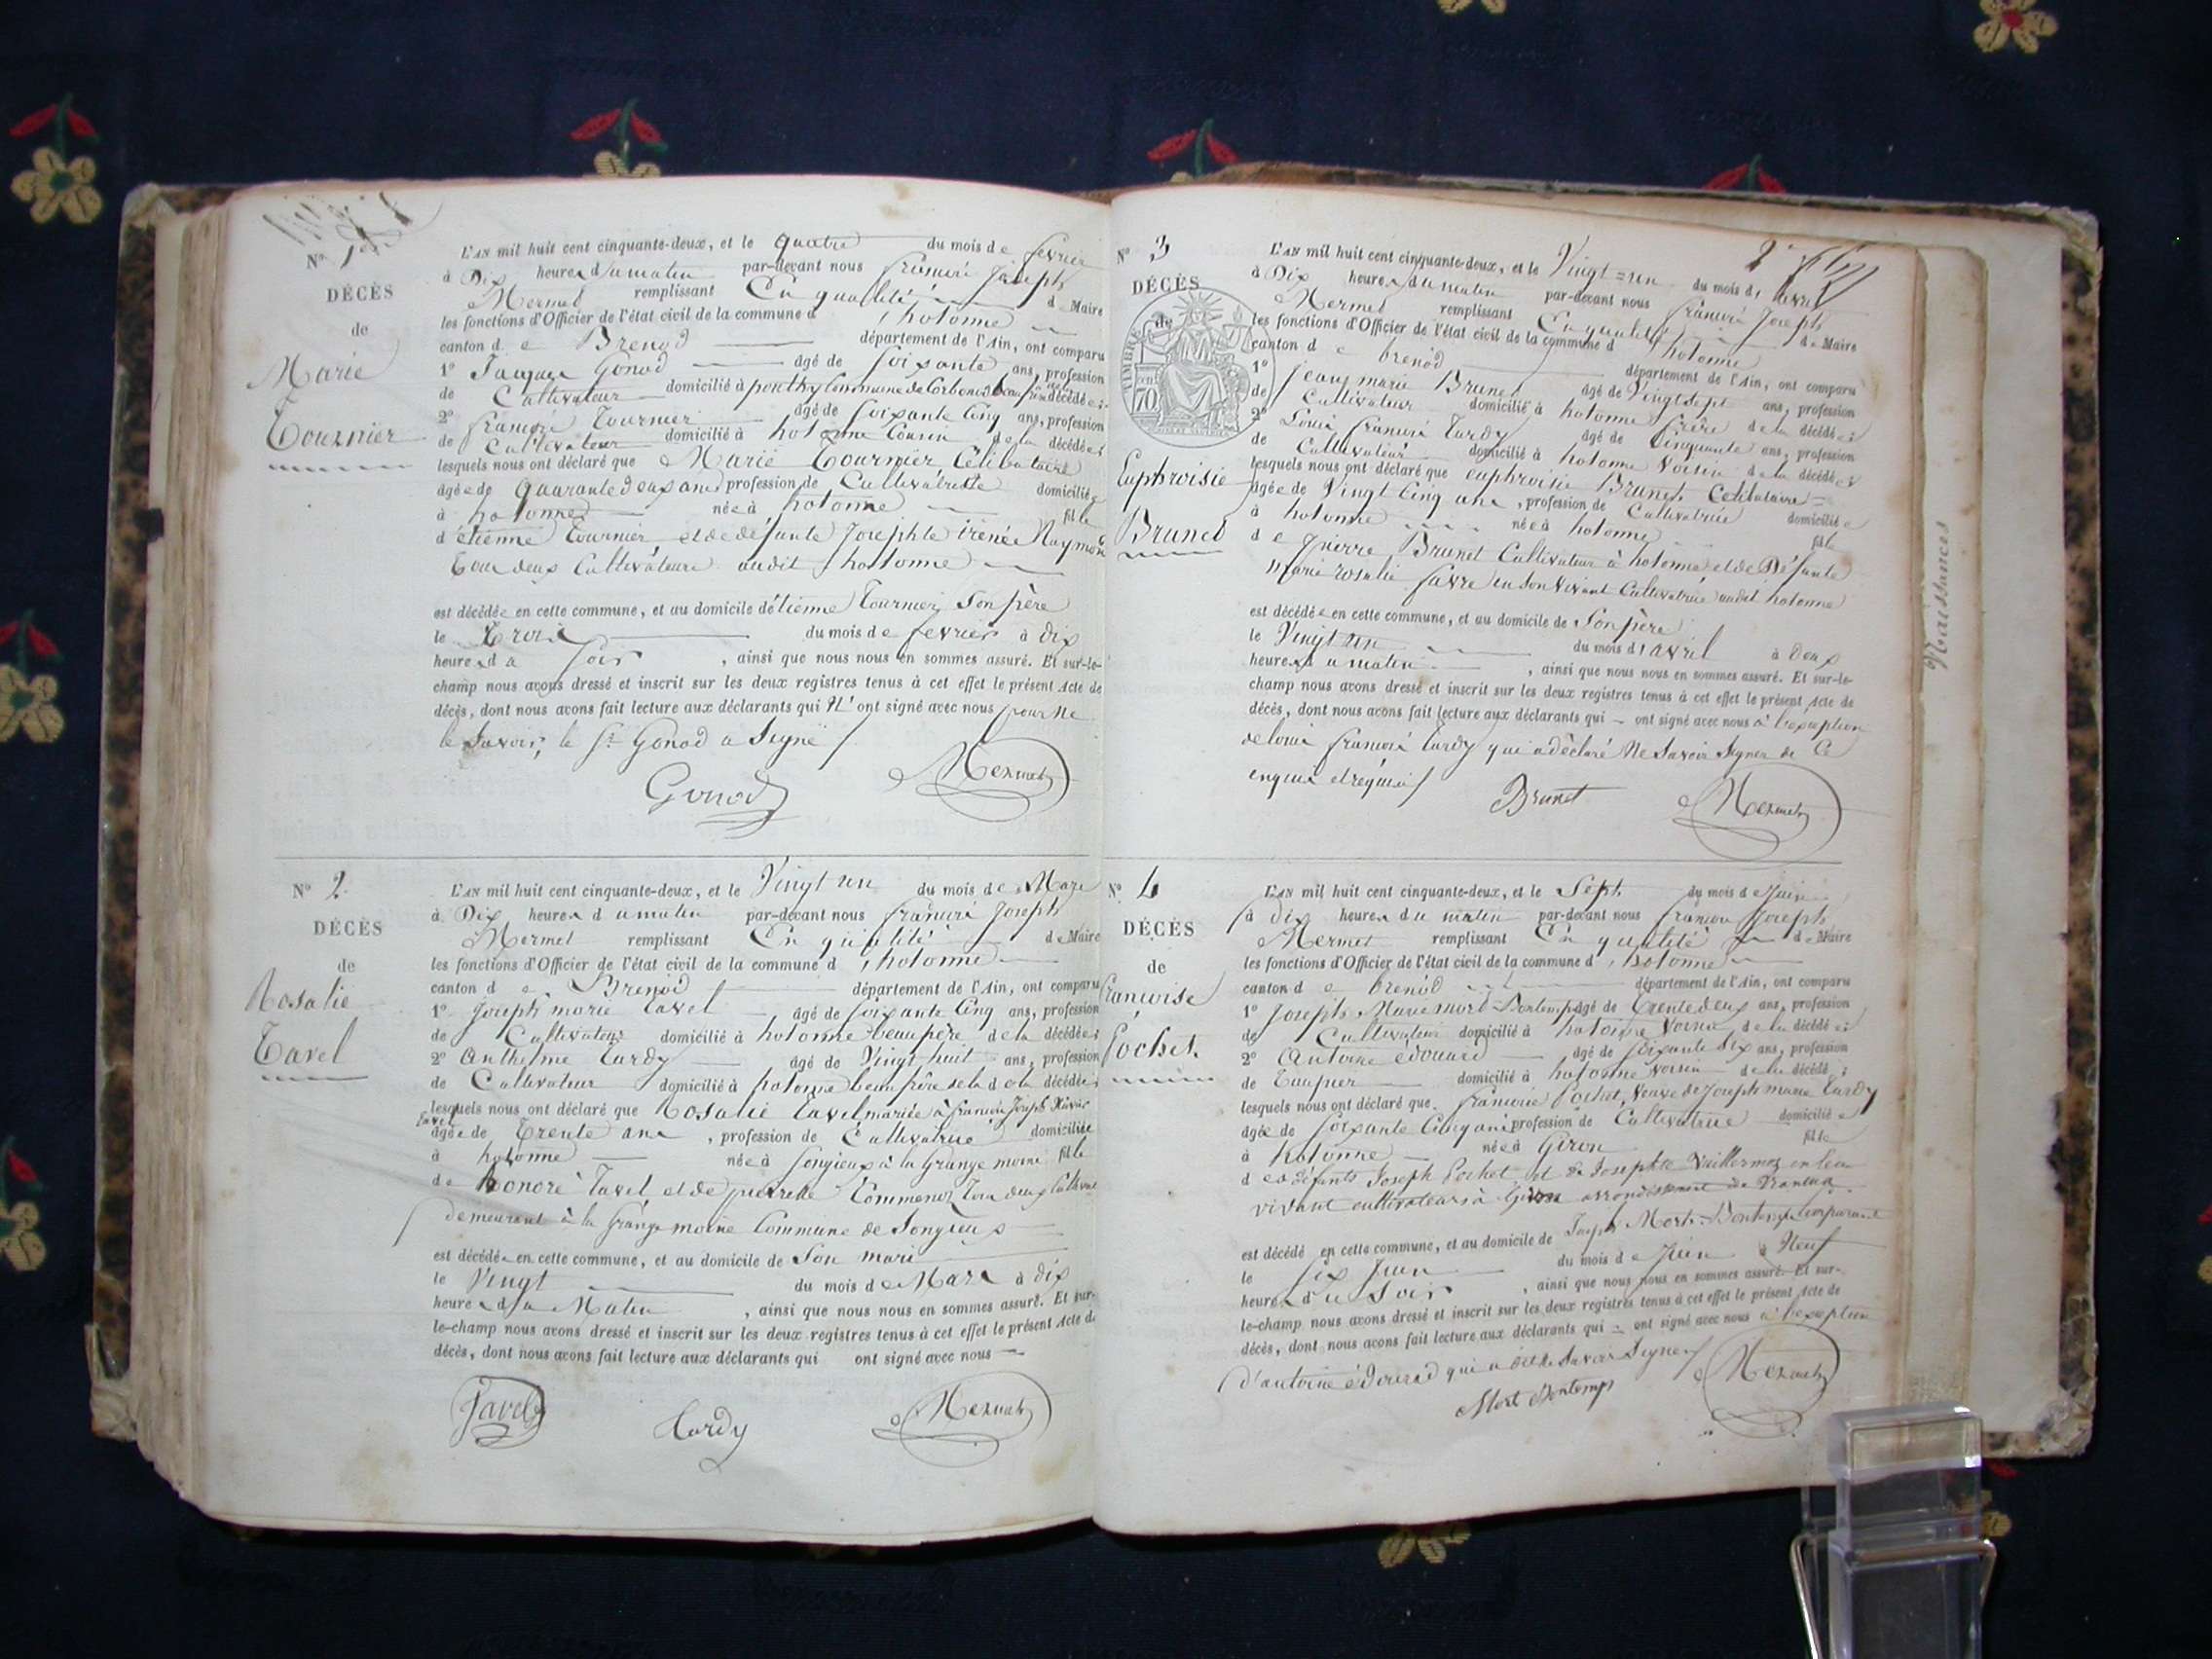 N° 1er
DÉCÈS
de
Marie
Tournier
L'AN mil huit cent cinquante-deux, et le quatre du mois de fevrier
à Dix heures du matin par-devant nous françois Joseph
Mermet remplissant En qualité de Maire
les fonctions d'Officier de l'état civil de la commune d'hotonne
canton de Brenod département de l'Ain, ont comparu
1° Jacques Gonod âgé de soixante ans, profession
de Cultivateur domicilié à ponthy Commune de Corbonod beau frère de la décédée;
2° françois Tournier âgé de soixante Cinq ans, profession
de Cultivateur domicilié à hotonne Cousin de la décédée;
lesquels nous ont déclaré que Marie Tournier Célibataire
âgée de quarante deux ans profession de Cultivatrice domiciliée
à hotonne née à hotonne fille
d'étienne Tournier et de défunte Josephte irénée Raymond
Tous deux Cultivateurs audit hotonne
est décédée en cette commune, et au domicile d'étienne Tournier Son père
le Trois du mois de fevrier à dix
heures du soir, ainsi que nous nous en sommes assuré. Et sur-le-
champ nous avons dressé et inscrit sur les deux registres tenus à cet effet le présent Acte de
décès, dont nous avons fait lecture aux déclarants qui N'ont signé avec nous pour Ne
le Savoir, le Sr. Gonod a Signé
Gonod Mermet
N° 2
DÉCÈS
de
Rosalie
Tavel
L'AN mil huit cent cinquante-deux, et le Vingt un du mois de Mars
à Dix heures du matin par-devant nous françois Joseph
Mermet remplissant En qualité de Maire
les fonctions d'Officier de l'état civil de la commune d'hotonne
canton de Brenod département de l'Ain, ont comparu
1° Joseph marie tavel âgé de soixante Cinq ans, profession
de Cultivateur domicilié à hotonne beaupère de la décédée;
2° Anthelme tardy âgé de Vingt huit ans, profession
de Cultivateur domicilié à hotonne beau frère de la décédée;
lesquels nous ont déclaré que Rosalie tavel mariée à françois Joseph Xavier
tavel
âgée de Trente ans, profession de Cultivatrice domiciliée
à hotonne née à Songieux à la Grange moine fille
de honoré Tavel et de pierrette Tous deux
demeurant à la Grange moine Commune de Songieux
est décédée en cette commune, et au domicile de Son mari
le Vingt du mois de Mars à dix
heures du Matin, ainsi que nous nous en sommes assuré. Et sur-
le-champ nous avons dressé et inscrit sur les deux registres tenus à cet effet le présent Acte de
décès, dont nous avons fait lecture aux déclarants qui ont signé avec nous
Tavel tardy Mermet
N° 3
DÉCÈS
de
TIMBRE
70
Euphroisie
Brunet
L'AN mil huit cent cinquante-deux, et le Vingt=un du mois d'avril
à Dix heures du matin par-devant nous françois Joseph
Mermet remplissant En qualité de Maire
les fonctions d'Officier de l'état civil de la commune d'hotonne
canton de brenod département de l'Ain, ont comparu
1° Jean marie Brunet âgé de Vingt sept ans, profession
de Cultivateur domicilié à hotonne frère de la décédée;
2° Louis françois tardy âgé de Cinquante ans, profession
de Cultivateur domicilié à hotonne Voisin de la décédée;
lesquels nous ont déclaré que euphroisie Brunet Célibataire
âgée de Vingt Cinq ans, profession de Cultivatrice domiciliée
à hotonne née à hotonne fille
de pierre Brunet Cultivateur à hotonne et de Défunte
Marie rosalie favre en son Vivant Cultivatrice audit hotonne
est décédée en cette commune, et au domicile de Son père
le Vingt un du mois d'avril à deux
heures du matin, ainsi que nous nous en sommes assuré. Et sur-le-
champ nous avons dressé et inscrit sur les deux registres tenus à cet effet le présent Acte de
décès, dont nous avons fait lecture aux déclarants qui ont signé avec nous à l'exeption
de louis françois tardy qui a déclaré Ne Savoir Signer de Ce
enquis et requis
Brunet Mermet
N° 4
DÉCÈS
de
françoise
Pochet
L'AN mil huit cent cinquante-deux, et le Sept du mois de Juin
à dix heures du matin par-devant nous françois Joseph
Mermet remplissant En qualité de Maire
les fonctions d'Officier de l'état civil de la commune d'hotonne
canton de brenod département de l'Ain, ont comparu
1° Joseph Marie mort-Bontemps âgé de trente deux ans, profession
de Cultivateur domicilié à hotonne Voisin de la décédée;
2° Antoine édouard âgé de soixante dix ans, profession
de Taupier domicilié à hotonne Voisin de la décédé;
lesquels nous ont déclaré que françoise Pochet, Veuve de Joseph marie tardy
âgée de soixante Cinq ans profession de Cultivatrice domiciliée
à hotonne née à Giron fille
des défunts Joseph Pochet et de Josephte Vuillermoz en leur
vivant cultivateurs à Giron arrondissement de Nantua
est décédé en cette commune, et au domicile de Joseph Mort-Bontemps Comparant
le six Juin du mois de Juin à Neuf
heures du Soir, ainsi que nous nous en sommes assuré. Et sur-
le-champ nous avons dressé et inscrit sur les deux registres tenus à cet effet le présent Acte de
décès, dont nous avons fait lecture aux déclarants qui ont signé avec nous à l'exeption
d'antoine édouard qui a dit Ne Savoir Signer
Mort Bontemps Mermet
Naissances